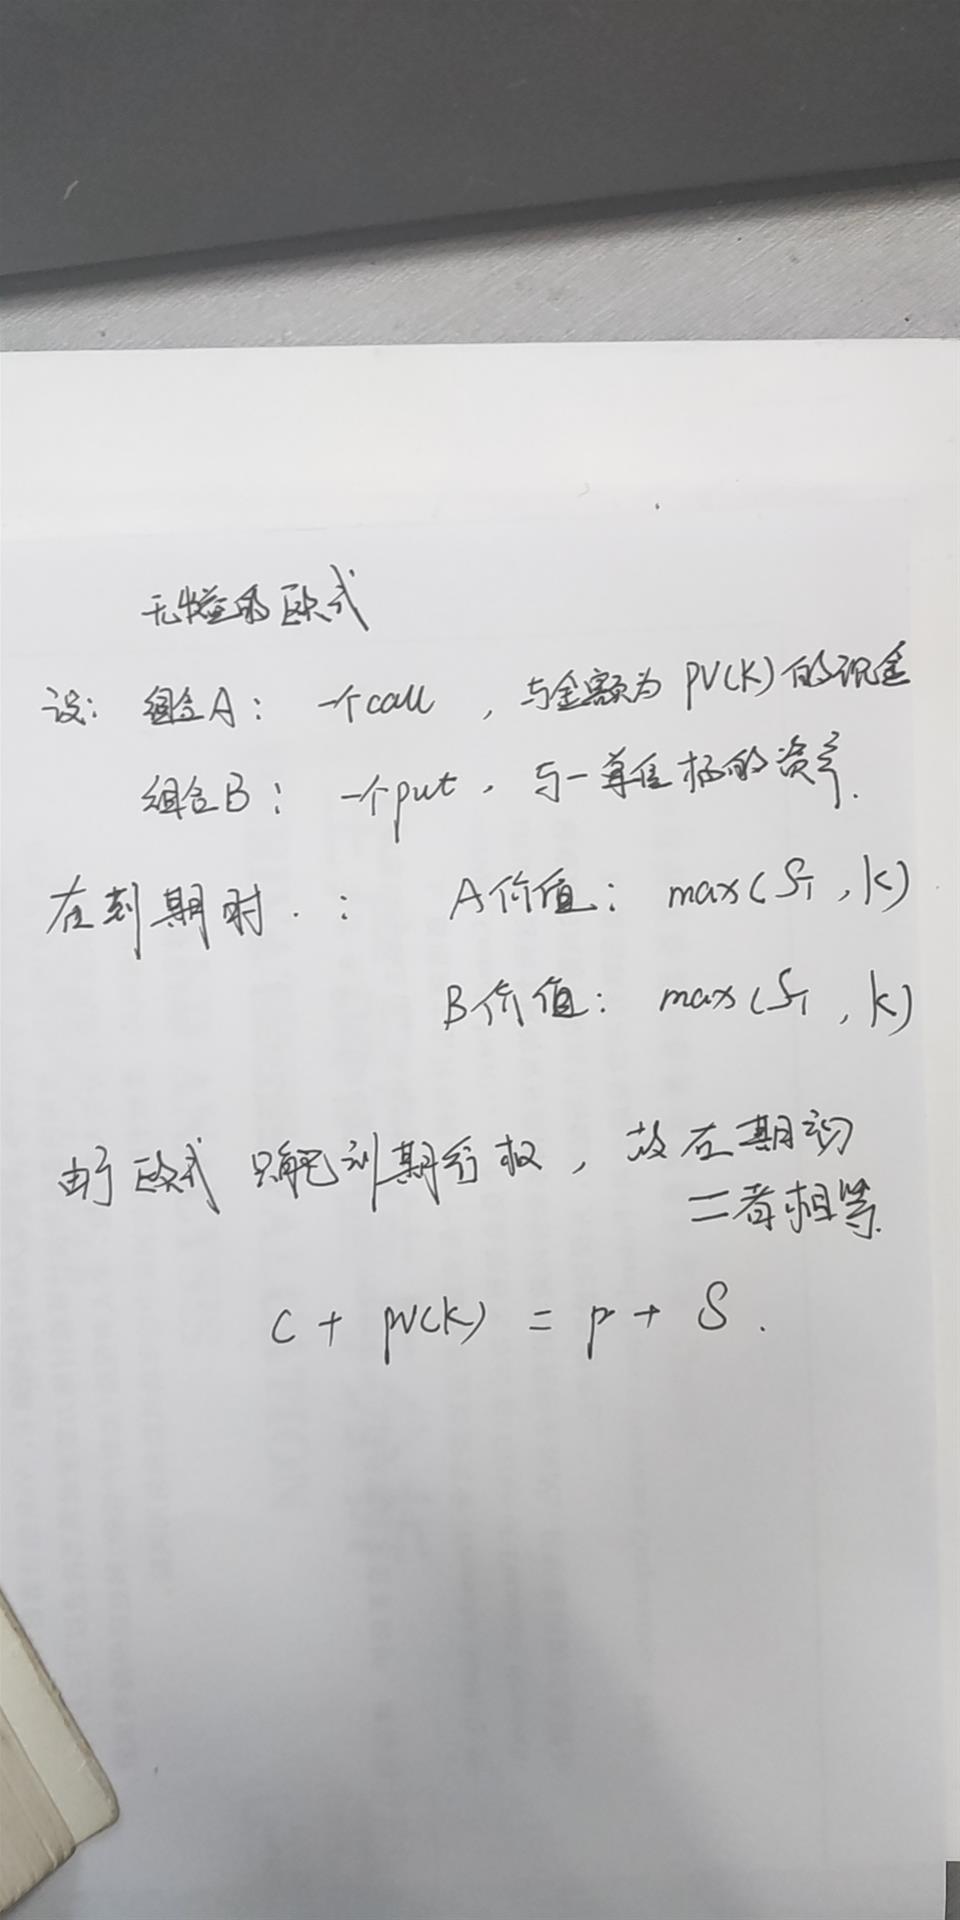 无收益的欧式
设: 组合A: 一个call , 与金额为 PV(K) 的现金
组合B: 一个put, 与一单位标的资产.
在到期时.: A价值: max(S_T, K)
B价值: max(S_T, K)
由于欧式只能到期行权, 故在期初
二者相等.
C + PV(K) = p + S.